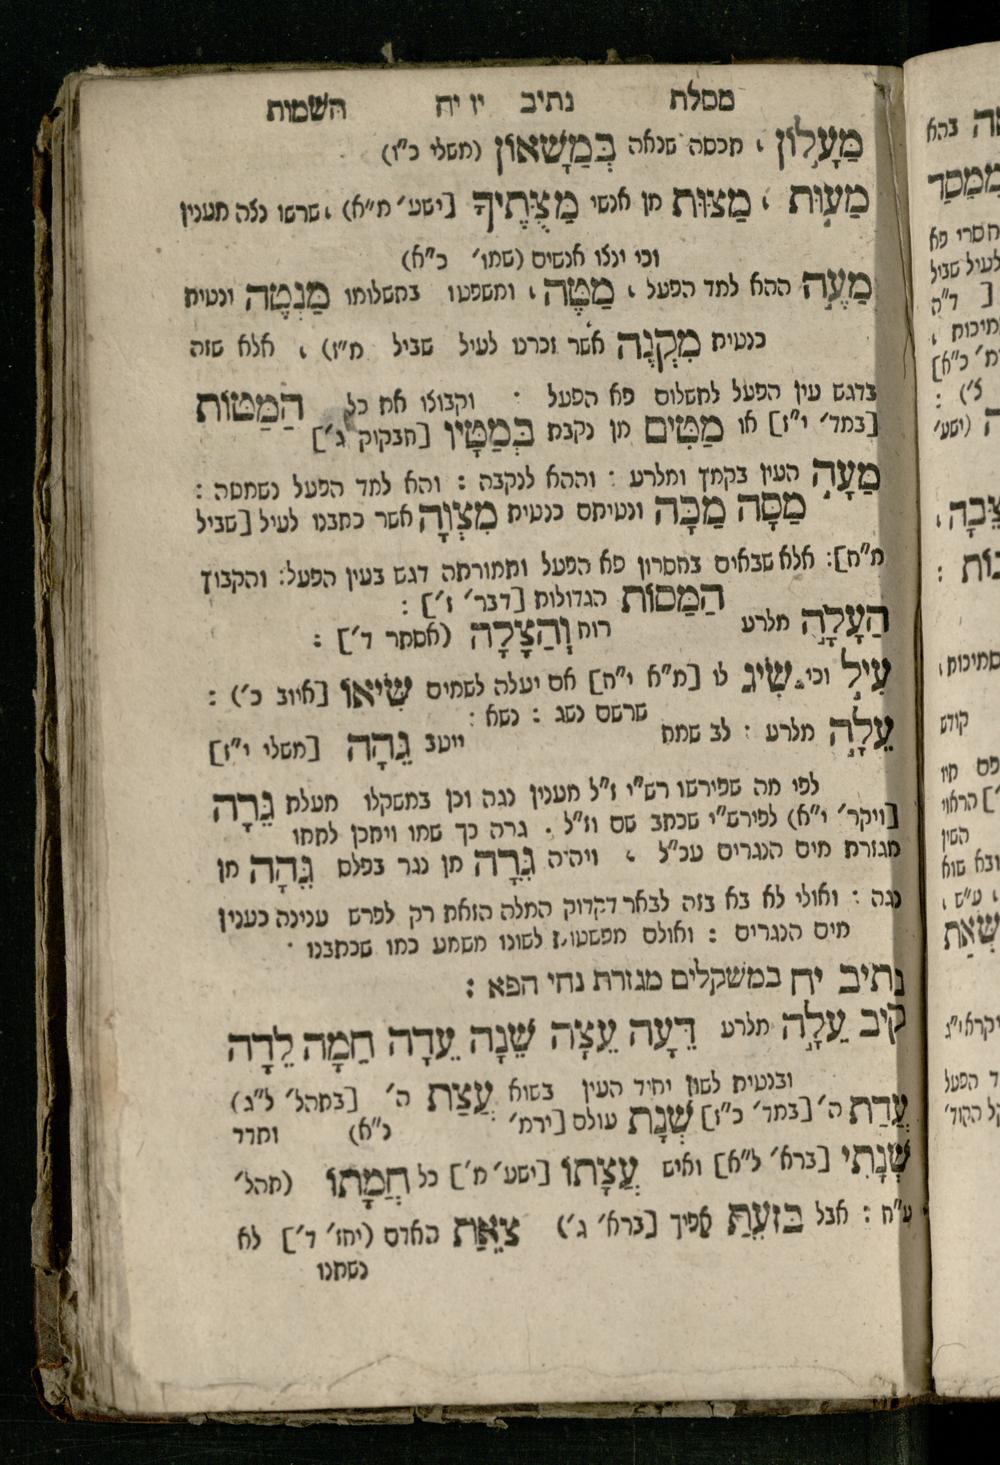 מסלת נתיב יז יח השמות
מַעָלוֹן ، תכסה שנאה בְּמַשָּׁאוֹן (משלי כ״ו)
מַעוּת ، מַצּוּת מן אנשי מַצֻּתֶיךָ [ישע׳ מ״א) ، שרשו נצה מענין
וכי ינצו אנשים (שמו׳ כ״א)
מַעֶה ההא למד הפעל ، מַטֶּה ، ומשפטו בתשלומו מַנְטֶה ונטית
כנטית מִקְנֶה אשר זכרנו לעיל שביל מ״ז) ، אלא שזה
בדגש עין הפעל לתשלום פא הפעל · וקבוצו את כל הַמַּטּוֹת
[במד׳ י״ז] או מַטִּים מן נקבת בְּמַטָּיו [חבקוק ג׳]
מַעָה העין בקמץ ומלרע : וההא לנקבה : והא למד הפעל נשמטה :
מַסָה מַכָּה ונטיתם כנטית מִצְוָה אשר כתבנו לעיל [שביל
מ״ח]: אלא שבאים בחסרון פא הפעל ותמורתה דגש בעין הפעל: והקבוץ
הַמַּסּוֹת הגדולות [דבר׳ ז׳] :
הַעָלָה מלרע רוח וְהַצָּלָה (אסתר ד׳] :
עִיל וכי שִׂיג לו [מ״א י״ח] אם יעלה לשמים שִׂיאוֹ [איוב כ׳) :
שרשם נשג : נשא :
עֵלָה מלרע : לב שמח ייטב גֵּהָה [משלי י״ז]
לפי מה שפירשו רש״י ז״ל מענין נגה וכן במשקלו מעלת גֵּרָה
[ויקר׳ י״א) לפירש״י שכתב שם וז״ל . גרה כך שמו ויתכן לתתו
מגזרת מים הנגרים עכ״ל ، ויהיה גֵּרָה מן נגר בפלס גֵּהָה מן
נגה : ואולי לא בא בזה לבאר דקדוק המלה הזאת רק לפרש ענינה כענין
מים הנגרים : ואולם מפשטות לשונו משמע כמו שכתבנו ·
נתיב יח במשקלים מגזרת נחי הפא :
קיב עֵלָה מלרע דֵּעָה עֵצָה שֵׁנָה עֵדָה חֵמָה לֵדָה
ובנטית לשון יחיד העין בשוא עֲצַת ה׳ [בתהל׳ ל״ג)
עֲדַת ה׳ [במד׳ כ״ז] שְׁנָת עולם [ירמ׳ נ״א) ותדר
שְׁנָתִי [ברא׳ ל״א] ואיש עֲצָתוֹ [ישע׳ מ׳] כל חֲמָתוֹ (תהל׳
ע״ח : אבל בְּזֵעַת אפיך [ברא׳ ג׳) צֵאַת האדם (יחז׳ ד׳] לא
נשתנו